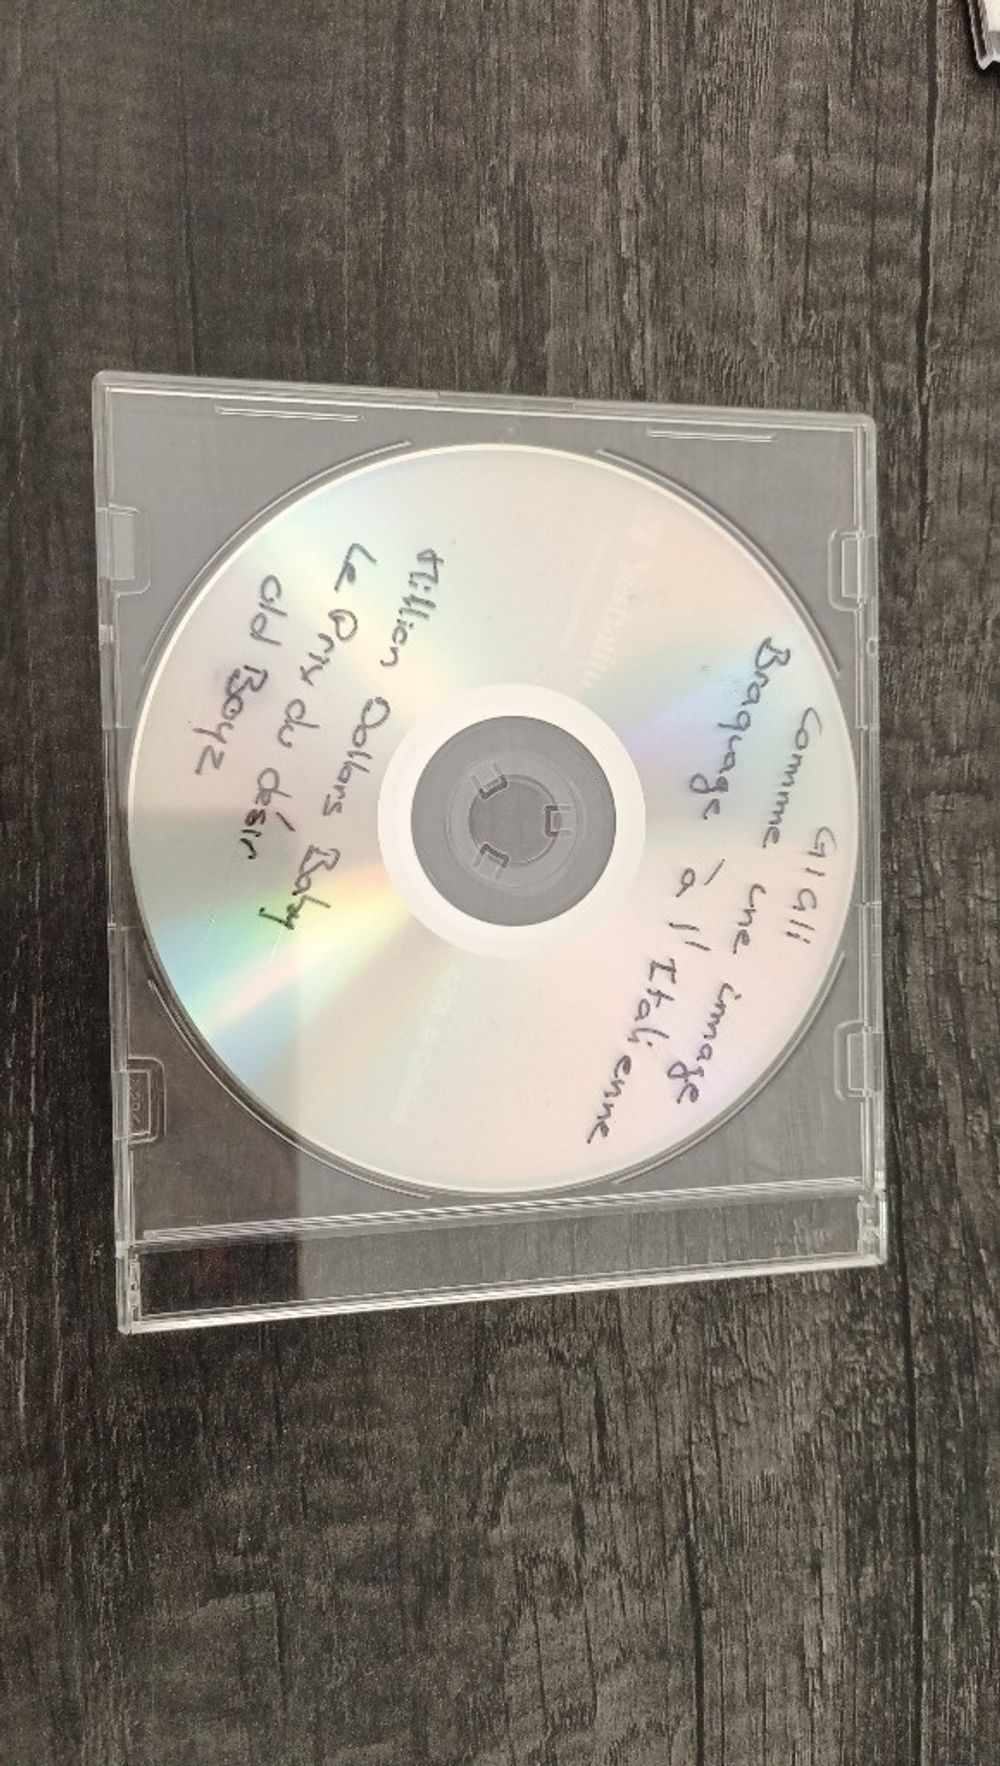 GIali
Comme une image
Braquage à l'Italienne
Verbatim
Million Dollars Baby
Le Prix du désir
old Boyz